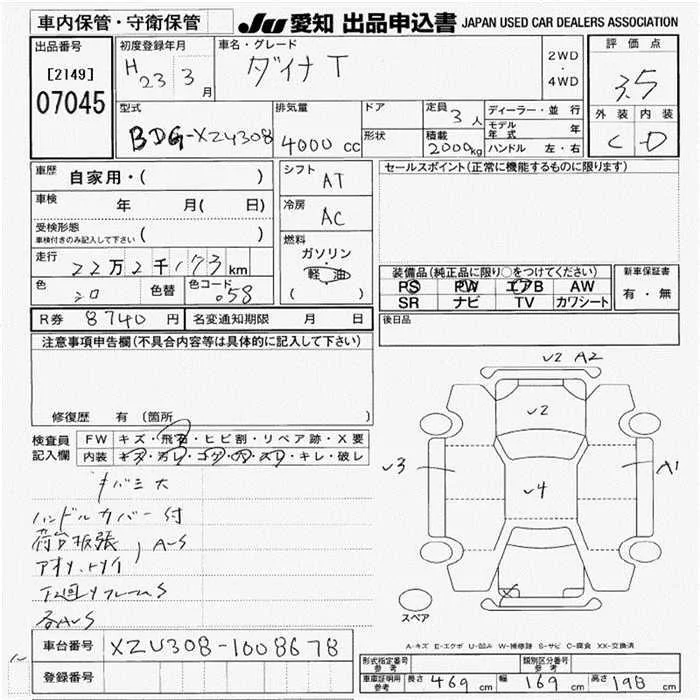 車内保管・守衛保管
JU 愛知 出品申込書 JAPAN USED CAR DEALERS ASSOCIATION
出品番号
[2149]
07045
初度登録年月
H 23 3 月
車名・グレード
ダイナ T
2WD
・
4WD
評価点
3.5
外装 内装
C D
型式
BDG-XZU308
排気量
4000 cc
ドア
形状
定員
3 人
積載
2000 kg
ディーラー・並行
モデル年式 年
ハンドル 左・右
車歴
自家用・( )
車検
年 月( 日)
受検形態
車検付きのみ記入して下さい ( )
走行
22万2千173 km
色
シロ
色替
色コード
058
シフト
AT
冷房
AC
燃料
ガソリン
・
軽油
( )
セールスポイント(正常に機能するものに限ります)
装備品(純正品に限り○をつけてください)
PS PW エアB AW
SR ナビ TV カワシート
新車保証書
有・無
R券 8740 円
名変通知期限 月 日
後日品
注意事項申告欄(不具合内容等は具体的に記入して下さい)
修復歴 有 (箇所 )
検査員記入欄
FW キズ・飛石・ヒビ割・リペア跡・X要
内装 キズ・汚レ・コゲ・穴・スリ・キレ・破レ
キバミ大
ハンドルカバー付
荷台板張
A-S
下回リフレームS
各A-S
V2 A2
V2
V3
V4
A1
スペア
A-キズ E-エクボ U-凹み W-補修跡 S-サビ C-腐食 XX-交換済
車台番号
XZU308-1008678
登録番号
形式指定番号
参考
類別区分番号
参考
車庫証明用
参考
長さ 469 cm
幅 169 cm
高さ 198 cm